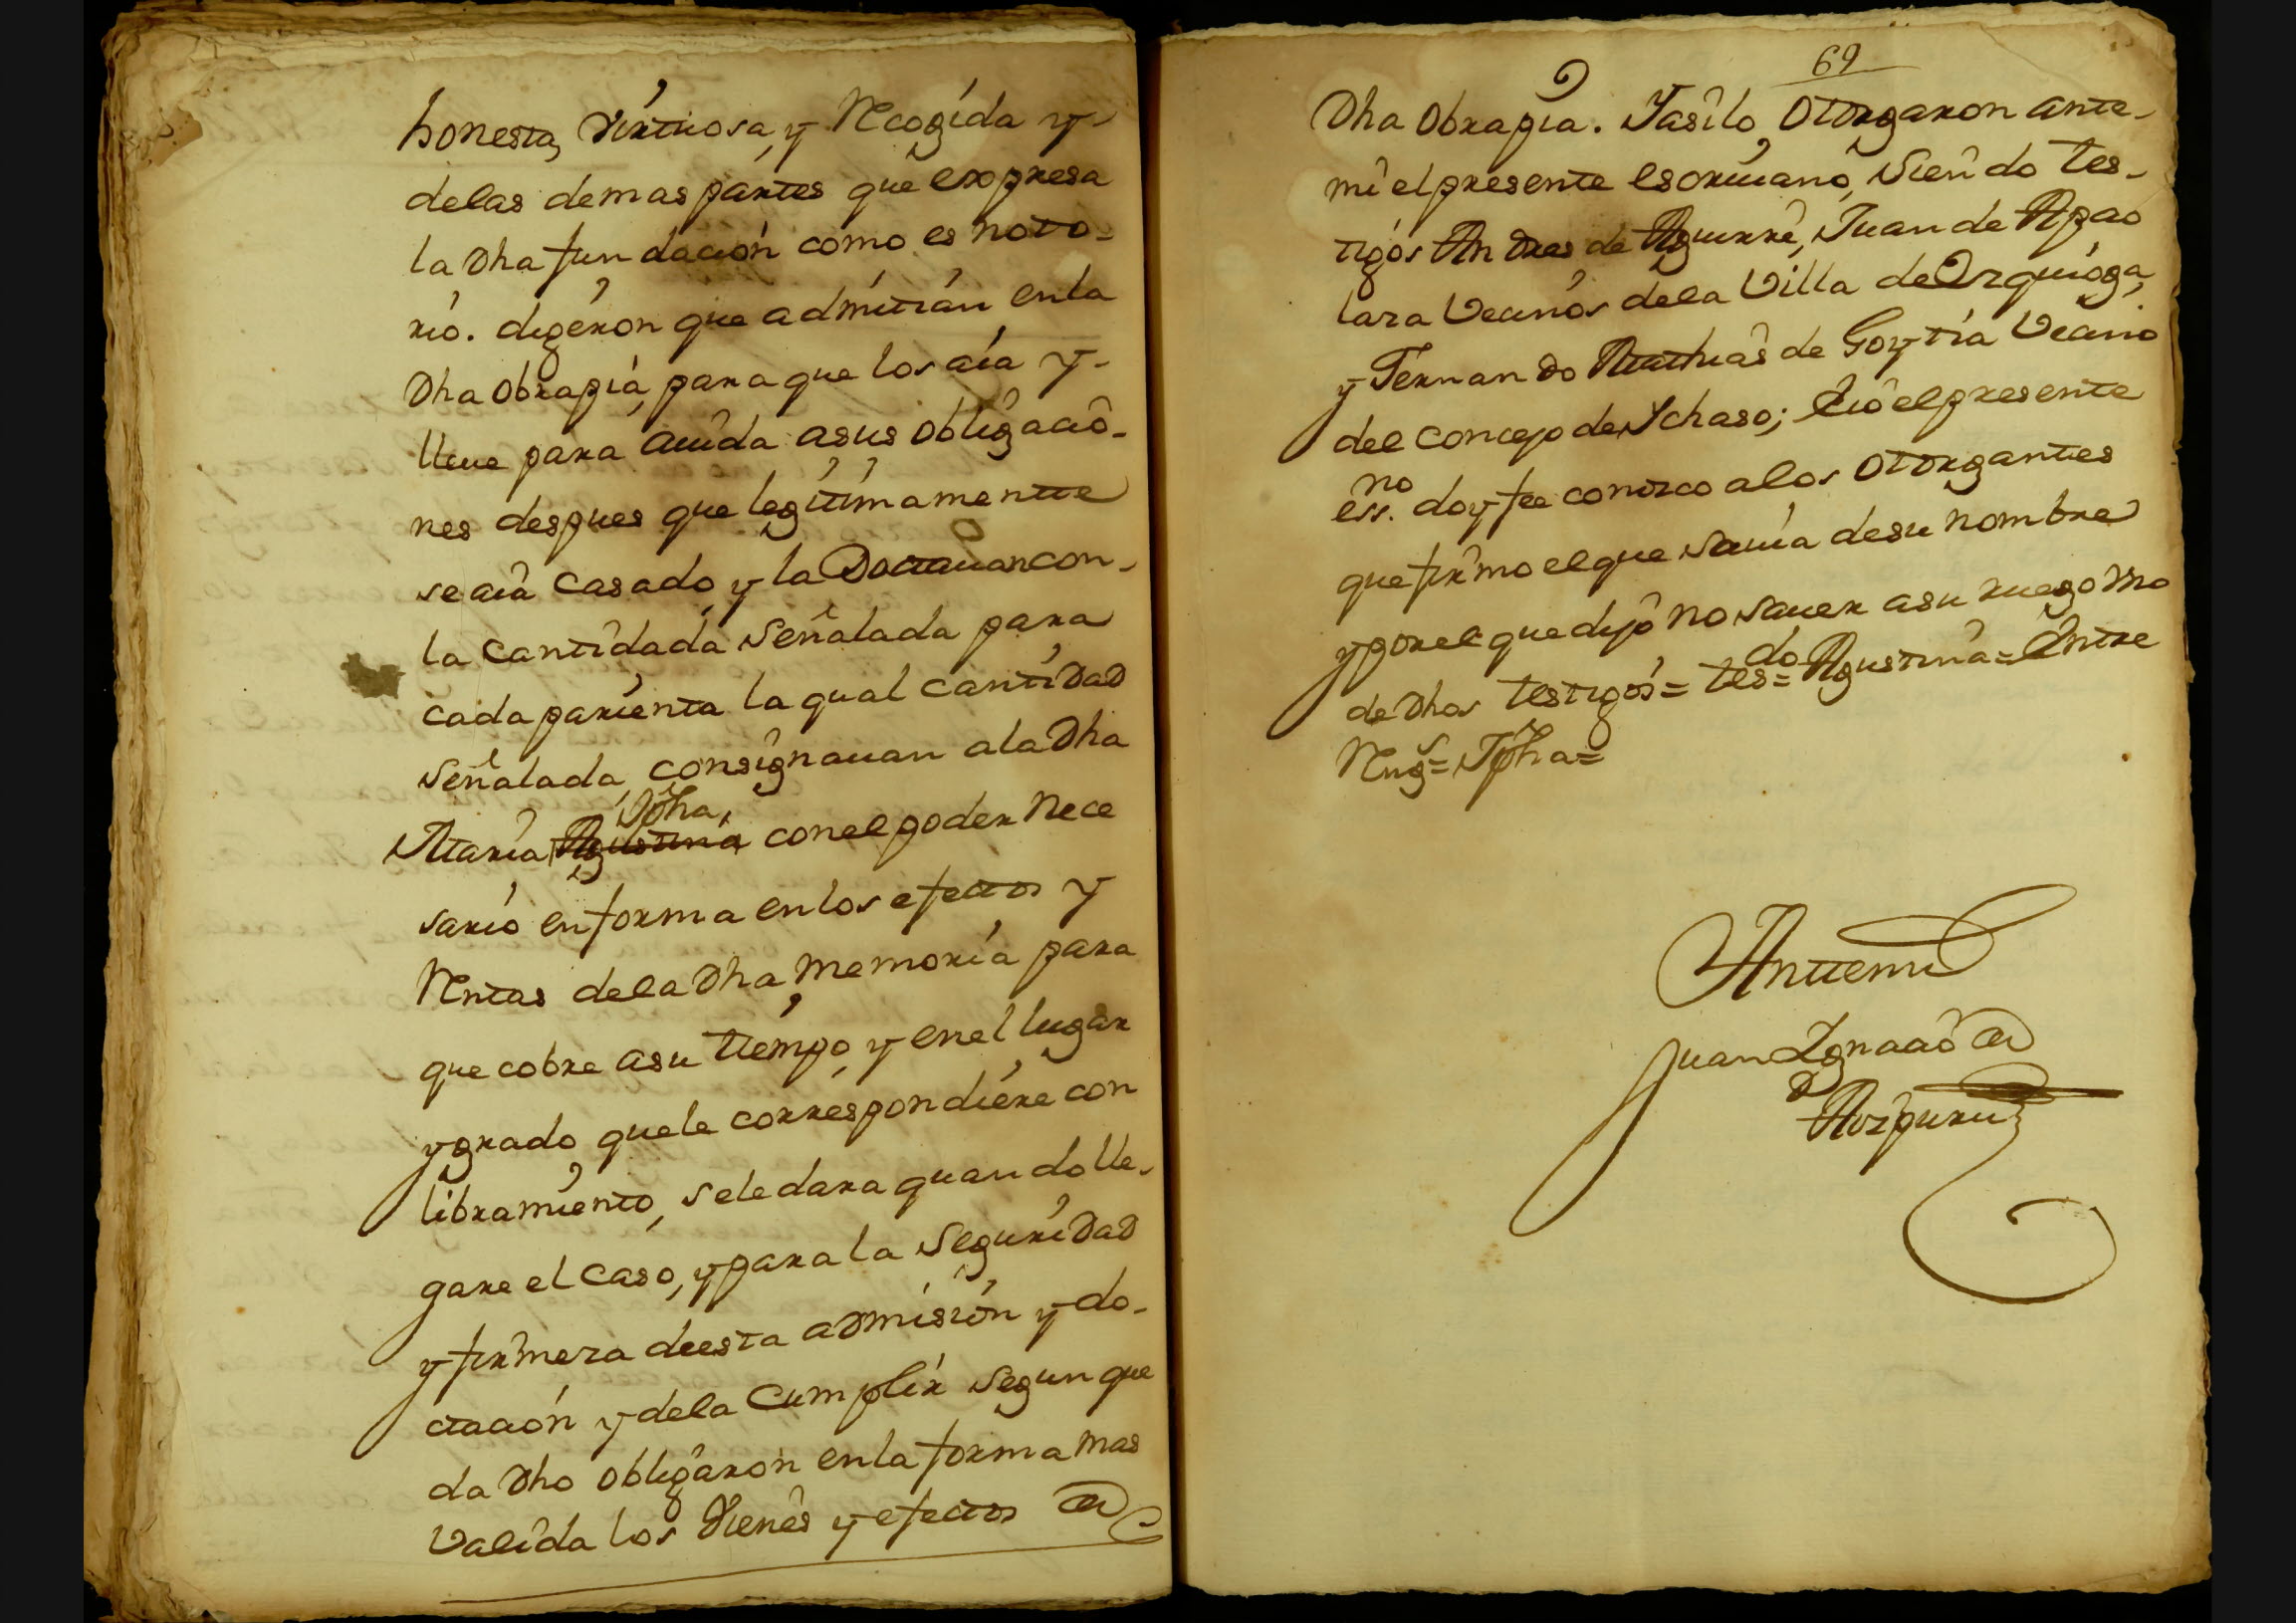 honesta, virtuosa, y Recogida y
delas demas partes que expresa
la Dha fundacion como es noto-
rio. digeron que admitian enla
Dha obrapia, para que los aia y
lleue para aiuda asus obligacio-
nes despues que legitimamentte
se aia casado y la Doctauan con-
la cantidad a Señalada para
cada parienta la qual cantidad
Señalada, consignauan ala Dha
Jpha,
Maria Agustina con el poder nece
sario en forma en los efectos y
Rentas dela Dha memoria para
que cobre asu ttiempo, y en el lugar
y grado que le correspondiere con
libramiento, se le dara quando lle-
gare el caso, y para la seguridad
y firmeza de esta admision y do-
ctacion y dela Cumplir segun que
da Dho obligaron enla forma mas
valida los vienes y efectos de
69
Dha obrapia. Y asilo otorgaron ante-
mi el presente escriuano, siendo tes-
tigos Andres de Aguirre, Juan de Apao
laza vecinos dela Villa de Ozquioga,
y Fernando Mathias de Goytia vecino
del concejo de Ychaso; E io el presente
ess.no doy fee conozco a los otorgantes
que firmo el que sauia de su nombre
y por el que dijo no sauer asu ruego vno
de Dhos testigos= tes=do Agustina= Entre
Rengs= Jpha=
Anttemi
Juan Ignacio de
Aozpuru